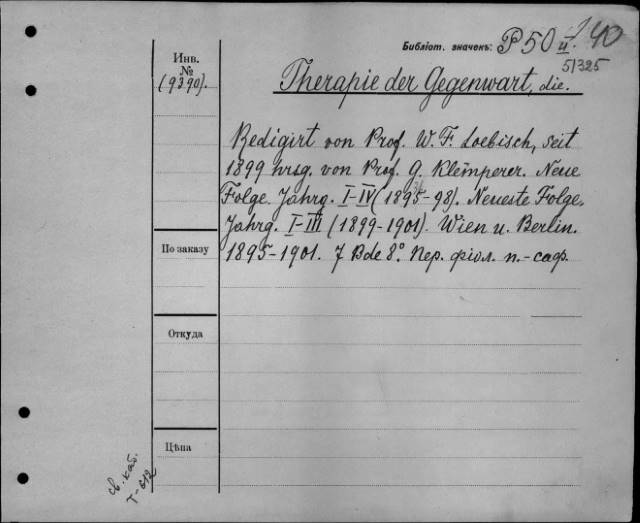 Библіот. значекъ: P 50 II 140
51325
Инв.
№
(9390).
Therapie der Gegenwart, die.
Redigirt von Prof. W. F. Loebisch, seit
1899 hrsg. von Prof. G. Klemperer. Neue
Folge. Jahrg. I-IV (1895-98). Neueste Folge.
Jahrg. I-III (1899-1901). Wien u. Berlin.
1895-1901. 7 Bde 8°. Пер. фіол. п.-саф.
По заказу
Откуда
Цѣна
св. каб.
Т-612